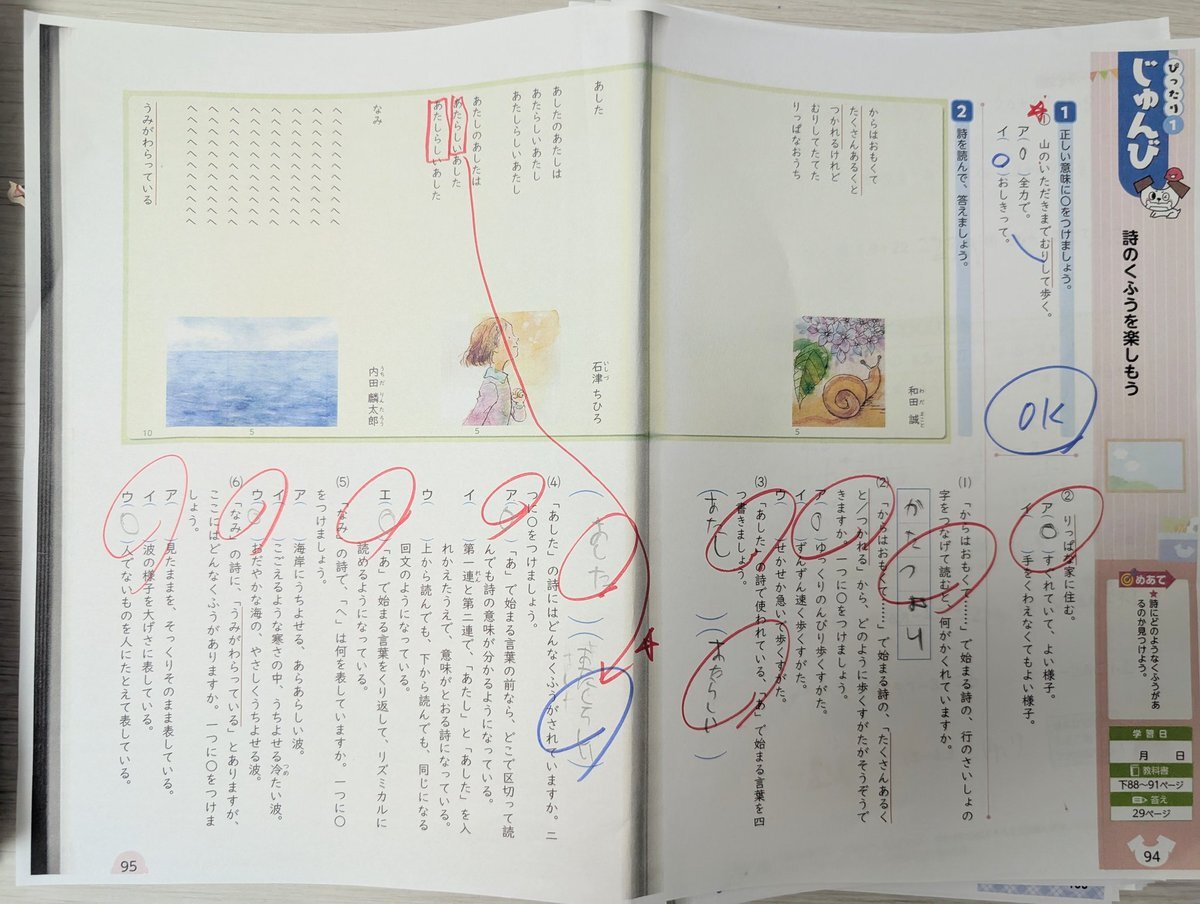 ぴったり1
じゅんび
詩のくふうを楽しもう
めあて
★詩にどのようなくふうがあ
るのか見つけよう。
学習日
月 日
教科書
下88〜91ページ
答え
29ページ
94
1 正しい意味に〇をつけましょう。
① 山のいただきまでむりして歩く。
ア（〇）全力で。
イ（〇）おしきって。
OK
② りっぱな家に住む。
ア（〇）すぐれていて、よい様子。
イ（ ）手をくわえなくてもよい様子。
2 詩を読んで、答えましょう。
和田 誠
わだ まこと
からはおもくて
たくさんあるくと
つかれるけれど
むりしてたてた
りっぱなおうち
5
あした
石津 ちひろ
いしづ
あしたのあたしは
あたらしいあたし
あたしらしいあたし
あたしのあしたは
あたらしいあした
あたしらしいあした
5
なみ
内田 麟太郎
うちだ りんたろう
へへへへへへへへへ
へへへへへへへへへ
へへへへへへへへへ
へへへへへへへへへ
へへへへへへへへへ
へへへへへへへへへ
へへへへへへへへへ
うみがわらっている
5
10
(1) 「からはおもくて……」で始まる詩の、行のさいしょの
字をつなげて読むと、何がかくれていますか。
かたつむり
(2) 「からはおもくて……」で始まる詩の、「たくさんあるく
と／つかれる」から、どのように歩くすがたがそうぞうで
きますか。一つに〇をつけましょう。
ア（〇）ゆっくりのんびり歩くすがた。
イ（ ）ずんずん速く歩くすがた。
ウ（ ）せかせか急いで歩くすがた。
(3) 「あした」の詩で使われている、「あ」で始まる言葉を四
つ書きましょう。
（あたし）（あたらしい）
（あした）
(4) 「あした」の詩にはどんなくふうがされていますか。二
つに〇をつけましょう。
ア（〇）「あ」で始まる言葉の前なら、どこで区切って読
んでも詩の意味が分かるようになっている。
イ（ ）第一連と第二連で、「あたし」と「あした」を入
れん
れかえたうえで、意味がとおる詩になっている。
ウ（ ）上から読んでも、下から読んでも、同じになる
回文のようになっている。
エ（〇）「あ」で始まる言葉をくり返して、リズミカルに
読めるようになっている。
(5) 「なみ」の詩で、「へ」は何を表していますか。一つに〇
をつけましょう。
ア（ ）海岸にうちよせる、あらあらしい波。
イ（ ）こごえるような寒さの中、うちよせる冷たい波。
つめ
ウ（〇）おだやかな海の、やさしくうちよせる波。
(6) 「なみ」の詩に、「うみがわらっている」とありますが、
ここにはどんなくふうがありますか。一つに〇をつけま
しょう。
ア（ ）見たままを、そっくりそのまま表している。
イ（ ）波の様子を大げさに表している。
ウ（〇）人でないものを人にたとえて表している。
95